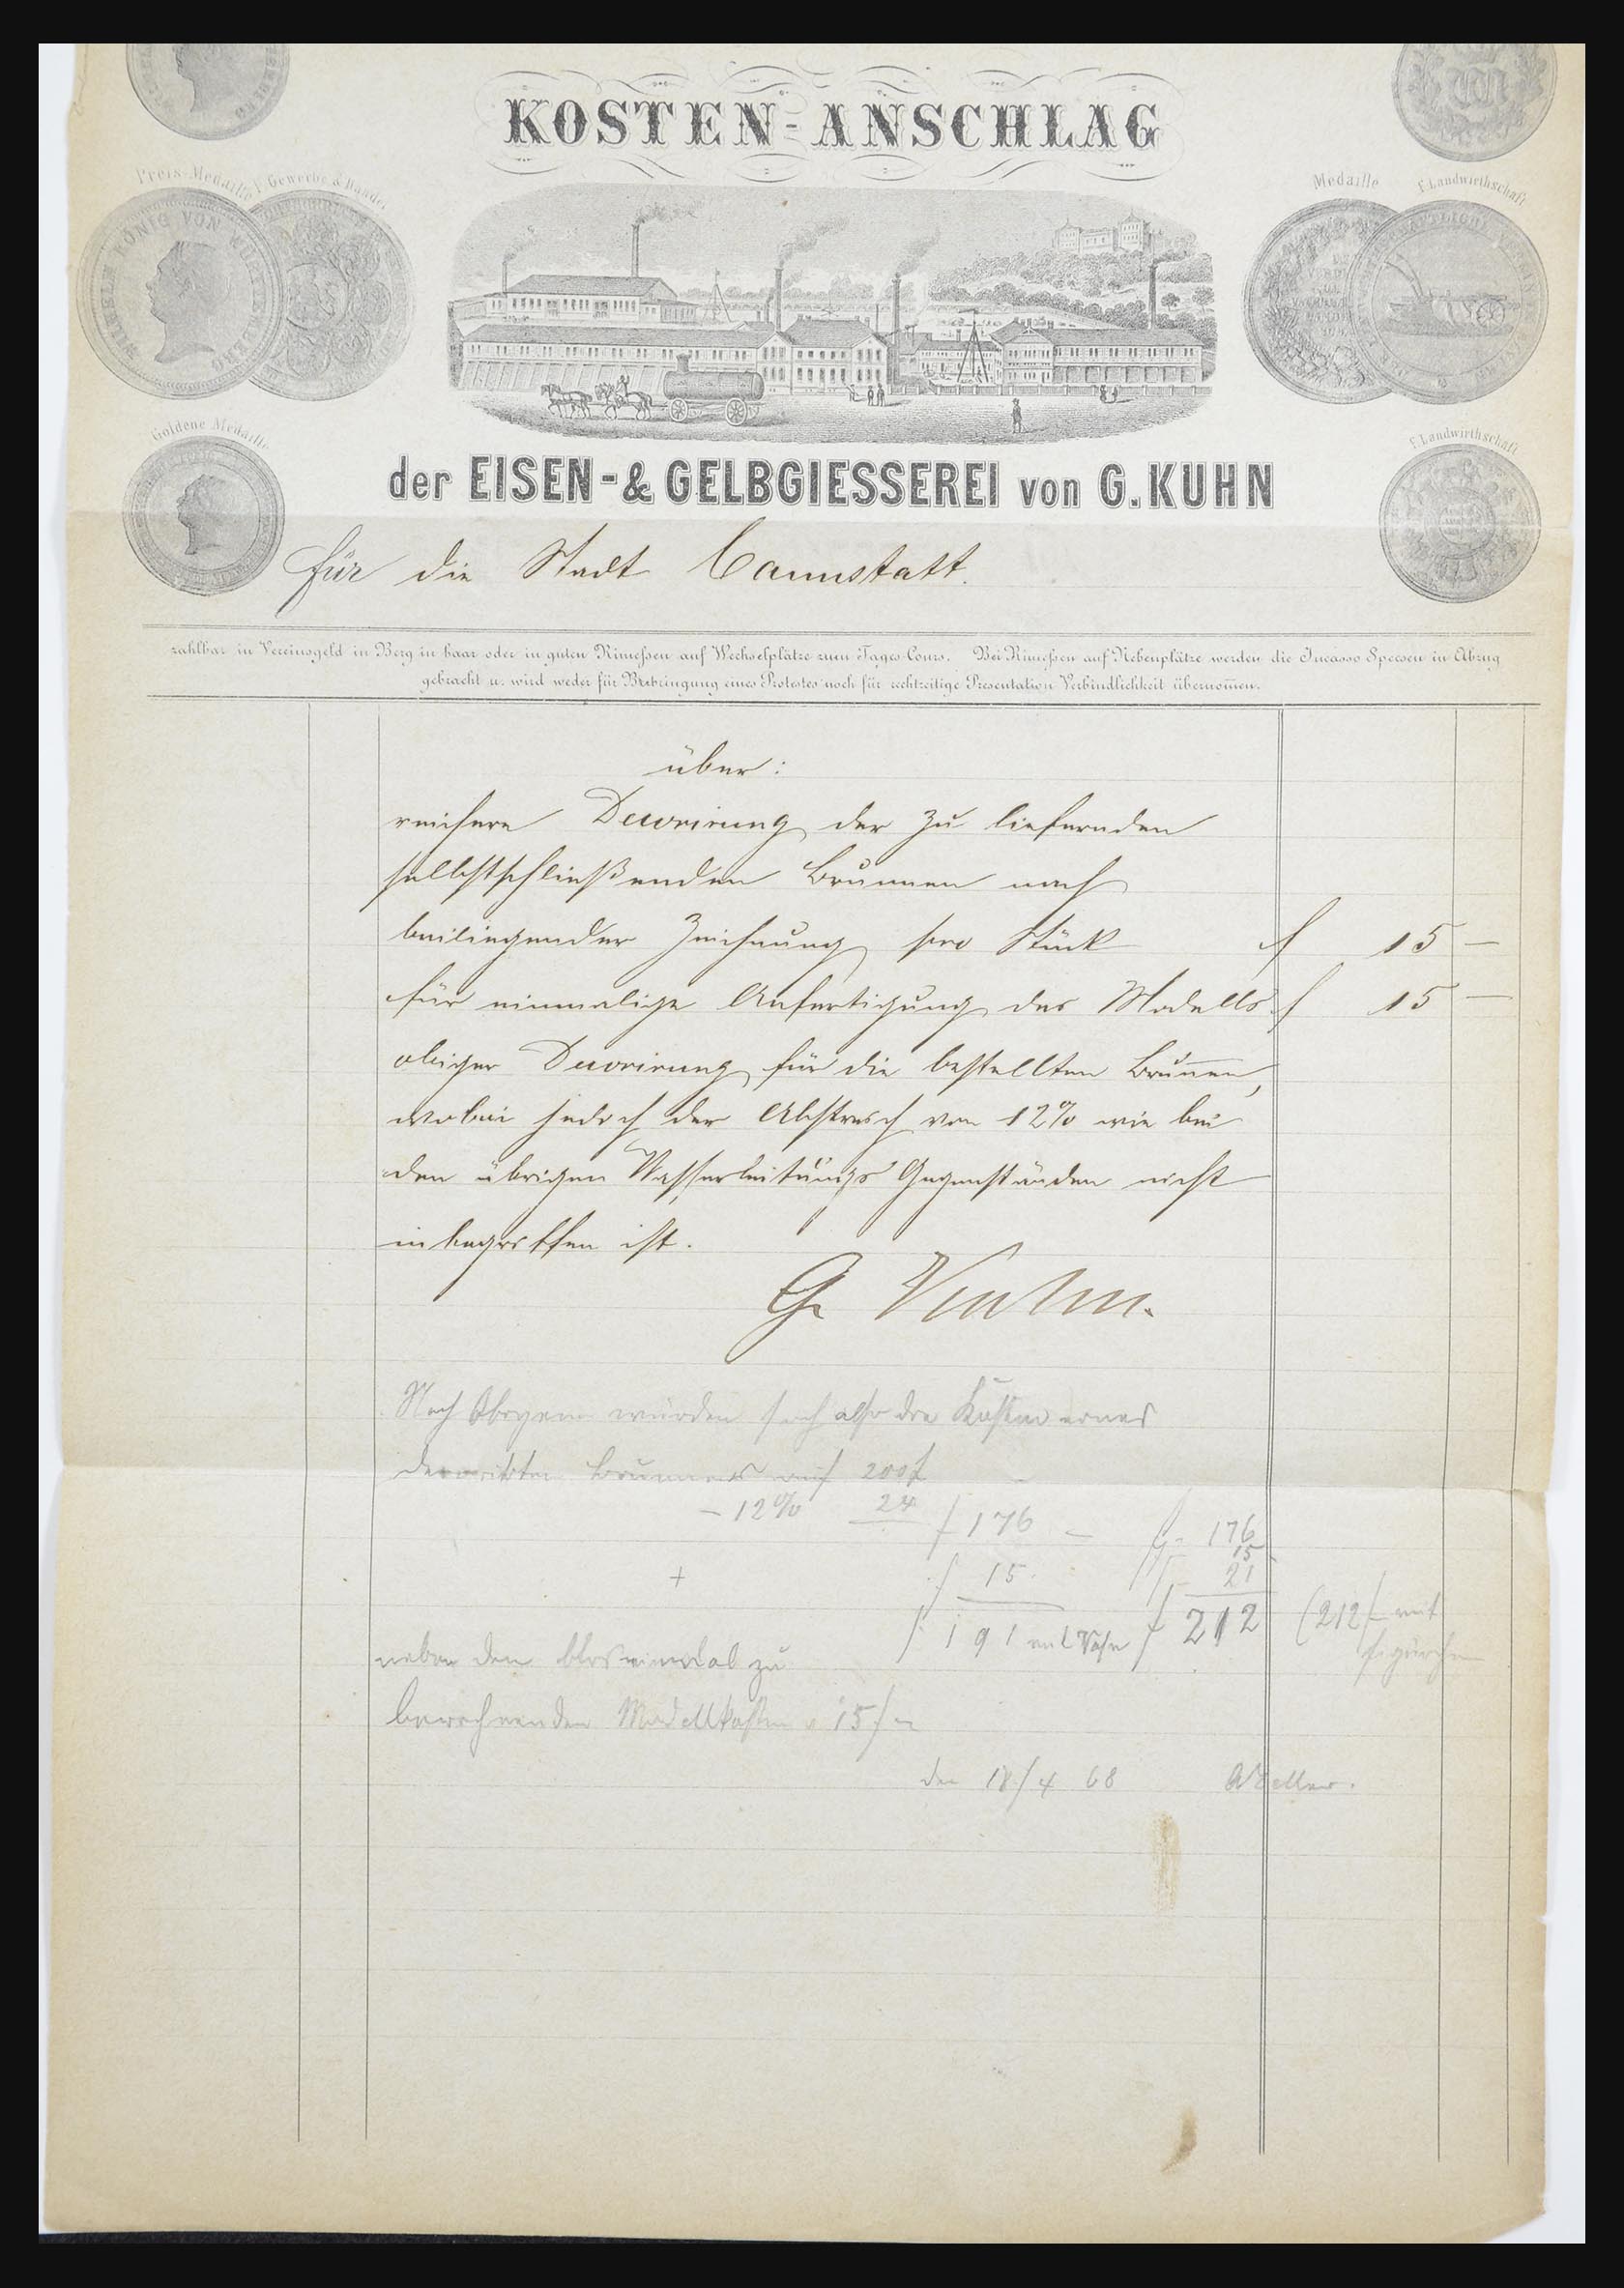 KOSTEN-ANSCHLAG
Preis-Medaille f. Gewerbe & Handel
Medaille f. Landwirthschaft
WILHELM KÖNIG VON WÜRTTEMBERG
Goldene Medaille
f. Landwirthschaft
der EISEN-& GELBGIESSEREI von G. KUHN
für die Stadt Cannstatt.
zahlbar in Vereinsgeld in Berg in baar oder in guten Rimeſsen auf Wechselplätze zum Tages-Cours. Bei Rimeſsen auf Nebenplätze werden die Incasso Speesen in Abzug
gebracht u. wird weder für Beibringung eines Protestes noch für rechtzeitige Presentation Verbindlichkeit übernom̅en.
über:
reichere Decorirung der zu liefernden
selbstschließenden Brunnen nach
beiliegender Zeichnung pro Stück f 15 —
für einmalige Anfertigung des Modells f 15 —
obiger Decorirung für die bestellten Brun̅en,
wobei jedoch der Abstreich von 12% wie bei
den übrigen Wasserleitungs Gegenständen nicht
inbegriffen ist.
G. Kuhn.
Nach Obigem würden sich also die Kosten eines
decorirten Brunnens auf 200 f
- 12% 24 f 176 — f 176
15
+ f 15. f 21
f 191 f 212 (212 f mit
neben den blos einmal zu
berechnenden Modellkosten 15 f
den 18/4 68